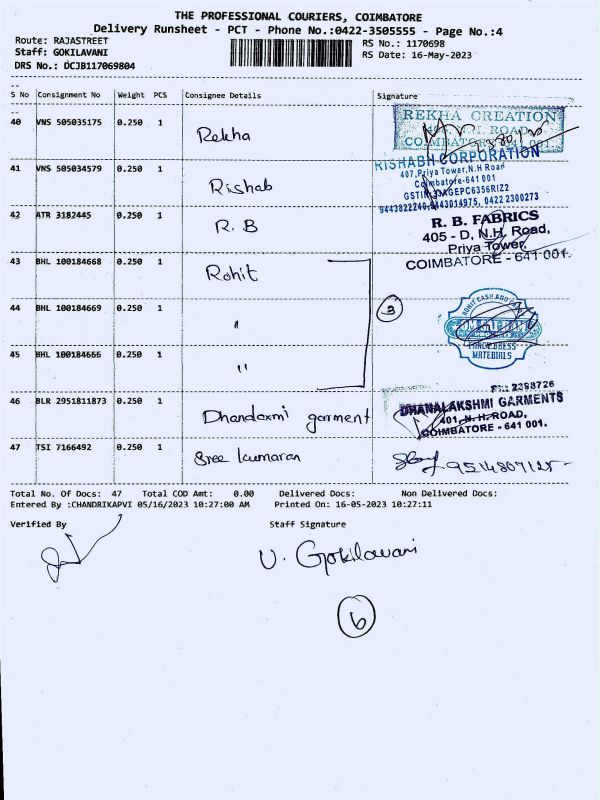 THE PROFESSIONAL COURIERS, COIMBATORE
Delivery Runsheet - PCT - Phone No.:0422-3505555 - Page No.:4
Route: RAJASTREET
Staff: GOKILAVANI
DRS No.: DCJB117069804
RS No.: 1170698
RS Date: 16-May-2023
S No Consignment No Weight PCS Consignee Details Signature
40 VNS 505035175 0.250 1 Rekha
REKHA CREATION
41 VNS 505034579 0.250 1 Rishab
RISHABH CORPORATION
407,Priya Tower,N.H Road
Coimbatore-641 001
42 ATR 3182445 0.250 1 R.B
R. B. FABRICS
405 - D, N.H. Road,
Priya Tower,
COIMBATORE - 641 001.
43 BHL 100184668 0.250 1 Rohit
44 BHL 100184669 0.250 1 "
3
45 BHL 100184666 0.250 1 "
MATERIALS
46 BLR 2951811873 0.250 1 Dhandaxmi garment
DHANALAKSHMI GARMENTS
401, N. H. ROAD,
COIMBATORE - 641 001.
47 TSI 7166492 0.250 1 Sree kumaran
9514807125
Total No. Of Docs: 47 Total COD Amt: 0.00 Delivered Docs: Non Delivered Docs:
Entered By :CHANDRIKAPVI 05/16/2023 10:27:00 AM Printed On: 16-05-2023 10:27:11
Verified By Staff Signature
V. Gokilavani
6